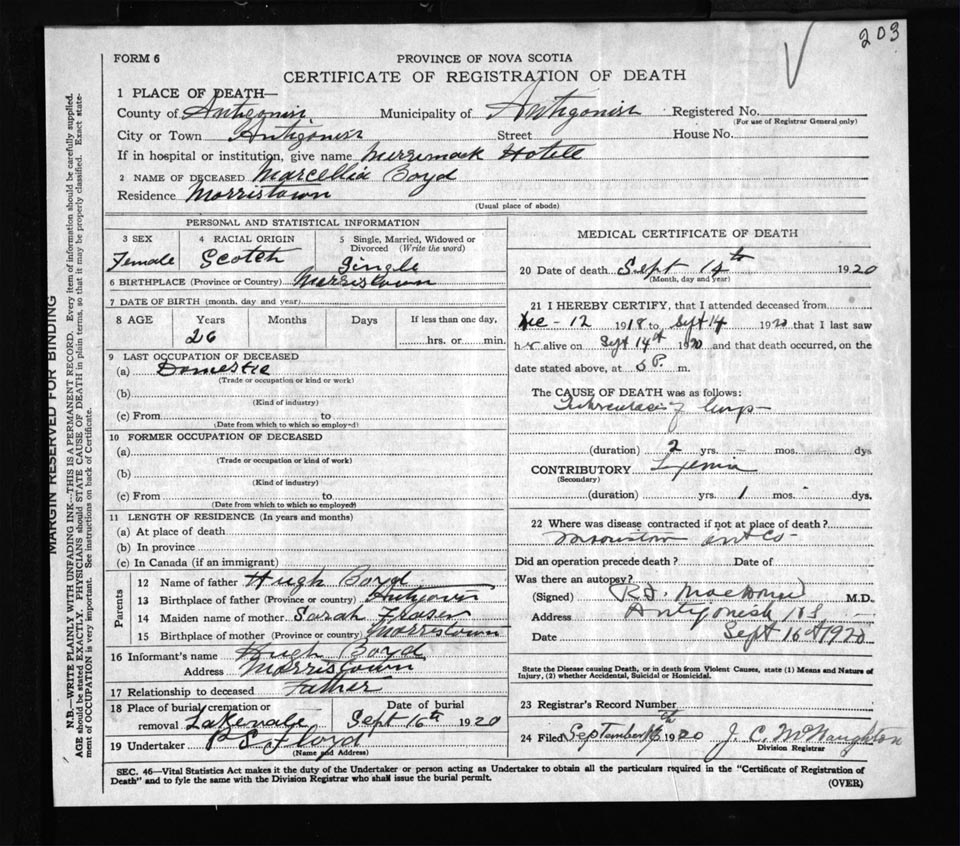 203
FORM 6
PROVINCE OF NOVA SCOTIA
CERTIFICATE OF REGISTRATION OF DEATH
1 PLACE OF DEATH—
County of Antigonish Municipality of Antigonish Registered No.
(For use of Registrar General only)
City or Town Antigonish Street House No.
If in hospital or institution, give name Merrimack Hotell
2 NAME OF DECEASED Marcellia Boyd
Residence Morristown
(Usual place of abode)
PERSONAL AND STATISTICAL INFORMATION
3 SEX Female
4 RACIAL ORIGIN Scotch
5 Single, Married, Widowed or Divorced (Write the word) Single
6 BIRTHPLACE (Province or Country) Morristown
7 DATE OF BIRTH (month, day and year)
8 AGE Years Months Days If less than one day,
26 hrs. or min.
9 LAST OCCUPATION OF DECEASED
(a) Domestic
(Trade or occupation or kind or work)
(b)
(Kind of industry)
(c) From to
(Date from which to which so employed)
10 FORMER OCCUPATION OF DECEASED
(a)
(Trade or occupation or kind of work)
(b)
(Kind of industry)
(c) From to
(Date from which to which so employed)
11 LENGTH OF RESIDENCE (In years and months)
(a) At place of death
(b) In province
(c) In Canada (if an immigrant)
Parents
12 Name of father Hugh Boyd
13 Birthplace of father (Province or country)
14 Maiden name of mother Sarah Fraser
15 Birthplace of mother (Province or country) Morristown
16 Informant's name Hugh Boyd
Address Morristown
17 Relationship to deceased Father
18 Place of burial, cremation or removal Lakevale
Date of burial Sept 16th 1920
19 Undertaker P S Floyd
(Name and Address)
MEDICAL CERTIFICATE OF DEATH
20 Date of death Sept 14th 1920
(Month, day and year)
21 I HEREBY CERTIFY, that I attended deceased from
Dec - 12 1918 to Sept 14 1920 that I last saw
her alive on Sept 14th 1920 and that death occurred, on the
date stated above, at P. m.
The CAUSE OF DEATH was as follows:
Tuberculosis of lungs
(duration) 2 yrs. mos. dys
CONTRIBUTORY
(Secondary)
(duration) yrs. 1 mos. dys.
22 Where was disease contracted if not at place of death?
Did an operation precede death? Date of
Was there an autopsy?
(Signed) M.D.
Address Antigonish N S
Date Sept 16th 1920
State the Disease causing Death, or in death from Violent Causes, state (1) Means and Nature of
Injury, (2) whether Accidental, Suicidal or Homicidal.
23 Registrar's Record Number
24 Filed September 16th 1920 J. C. McNaughton
Division Registrar
SEC. 46—Vital Statistics Act makes it the duty of the Undertaker or person acting as Undertaker to obtain all the particulars required in the "Certificate of Registration of
Death" and to fyle the same with the Division Registrar who shall issue the burial permit.
(OVER)
MARGIN RESERVED FOR BINDING
N.B.—WRITE PLAINLY WITH UNFADING INK—THIS IS A PERMANENT RECORD. Every item of information should be carefully supplied.
AGE should be stated EXACTLY. PHYSICIANS should STATE CAUSE OF DEATH in plain terms, so that it may be properly classified. Exact state-
ment of OCCUPATION is very important. See instructions on back of Certificate.